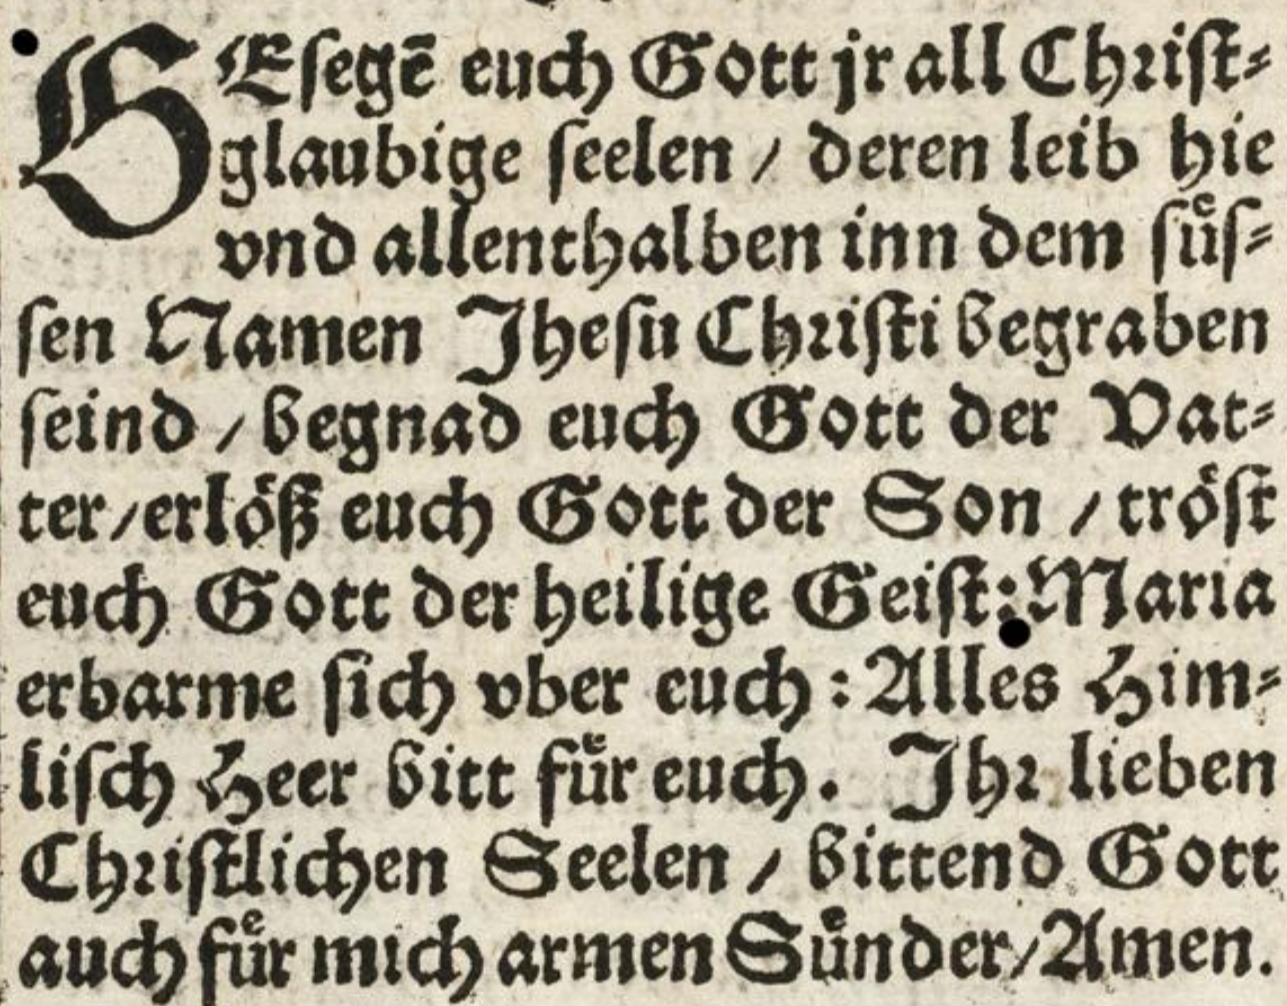 GEſegē euch Gott jr all Chriſt⸗
glaubige ſeelen / deren leib hie
vnd allenthalben inn dem ſuͤſ⸗
ſen Namen Jheſu Chriſti begraben
ſeind / begnad euch Gott der Vat⸗
ter / erloͤß euch Gott der Son / troͤſt
euch Gott der heilige Geiſt: Maria
erbarme ſich vber euch : Alles Him⸗
liſch Heer bitt fuͤr euch. Jhr lieben
Chriſtlichen Seelen / bittend Gott
auch fuͤr mich armen Suͤnder / Amen.